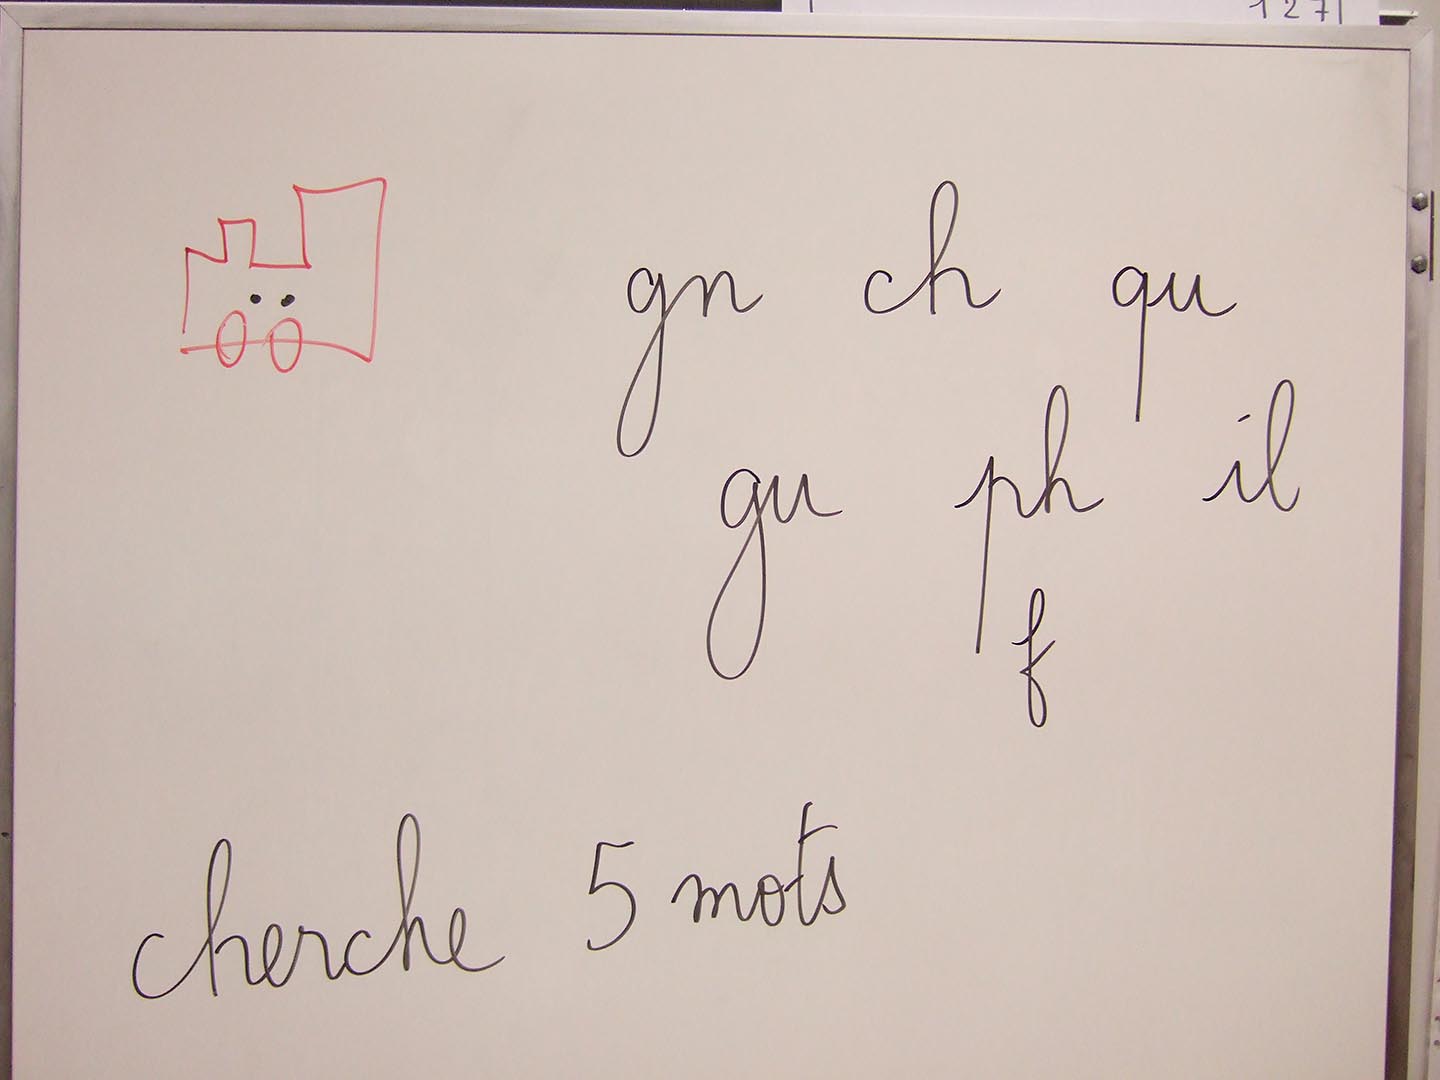 127
gn ch qu
gu ph il
f
cherche 5 mots